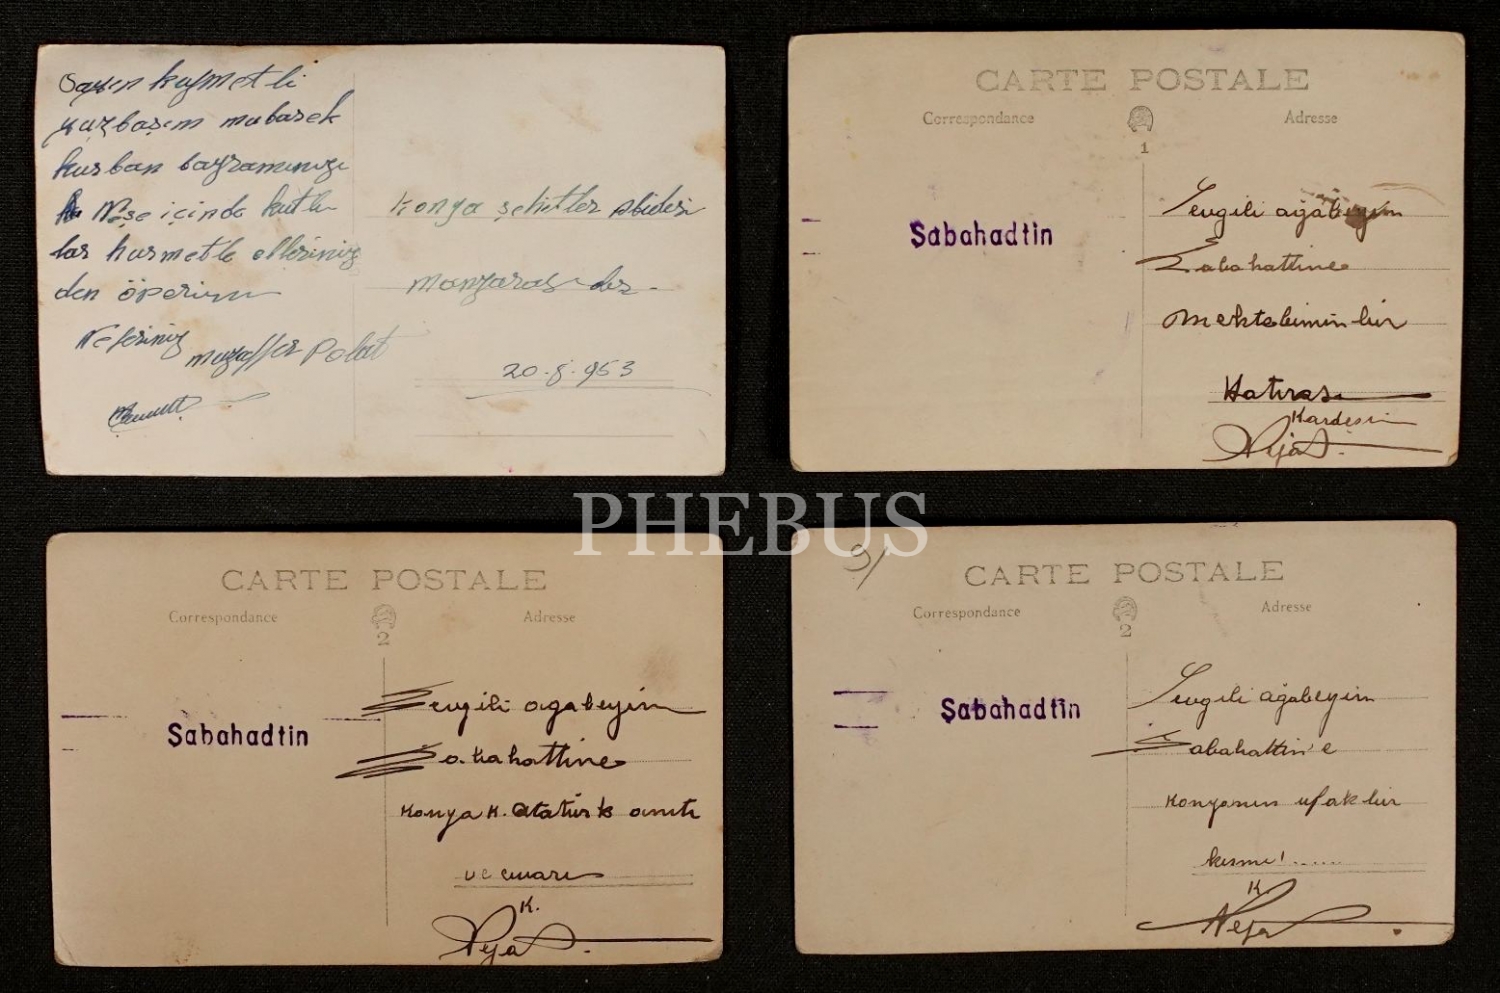 Sayın kıymetli
yüzbaşım mubarek
kurban bayramınızı
Neşe içinde kutlu
lar hurmetle elleriniz
den öperim
Neferiniz
muzaffer Polat
Konya şehitler abidesi
manzarasıdır.
20-8-953
CARTE POSTALE
Correspondance
Adresse
1
Sabahadtin
Sevgili ağabeyim
Sabahattine
mektebimin bir
Hatırası
Kardeşin
Nejat.
PHEBUS
CARTE POSTALE
Correspondance
Adresse
2
Sabahadtin
Sevgili agabeyim
Sabahattine
Konya K. Atatürk anıtı
ve civarı
K.
Nejat.
91
CARTE POSTALE
Correspondance
Adresse
2
Sabahadtin
Sevgili ağabeyim
Sabahattin'e
Konyanın ufak bir
kısmı!......
K.
Nejat